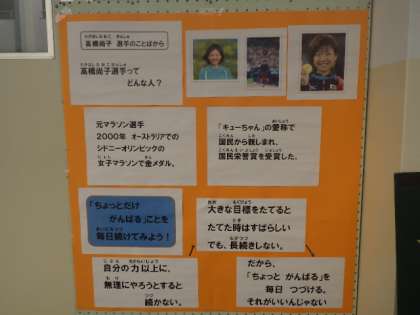 高橋尚子 選手のことばから
高橋尚子選手って
どんな人？
元マラソン選手
2000年 オーストラリアでの
シドニーオリンピックの
女子マラソンで金メダル。
「キューちゃん」の愛称で
国民から親しまれ、
国民栄誉賞を受賞した。
「ちょっとだけ
がんばる」ことを
毎日続けてみよう！
大きな目標をたてると
たてた時はすばらしい
でも、長続きしない。
自分の力以上に、
無理にやろうとすると
続かない。
だから、
「ちょっと がんばる」を
毎日 つづける。
それがいいんじゃない